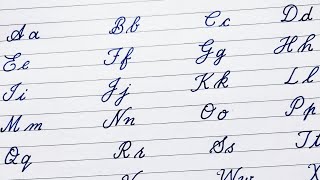 Aa Bb Cc Dd
Ee Ff Gg Hh
Ii Jj Kk Ll
Mm Nn Oo Pp
Qq Rr Ss Tt
V Ww X